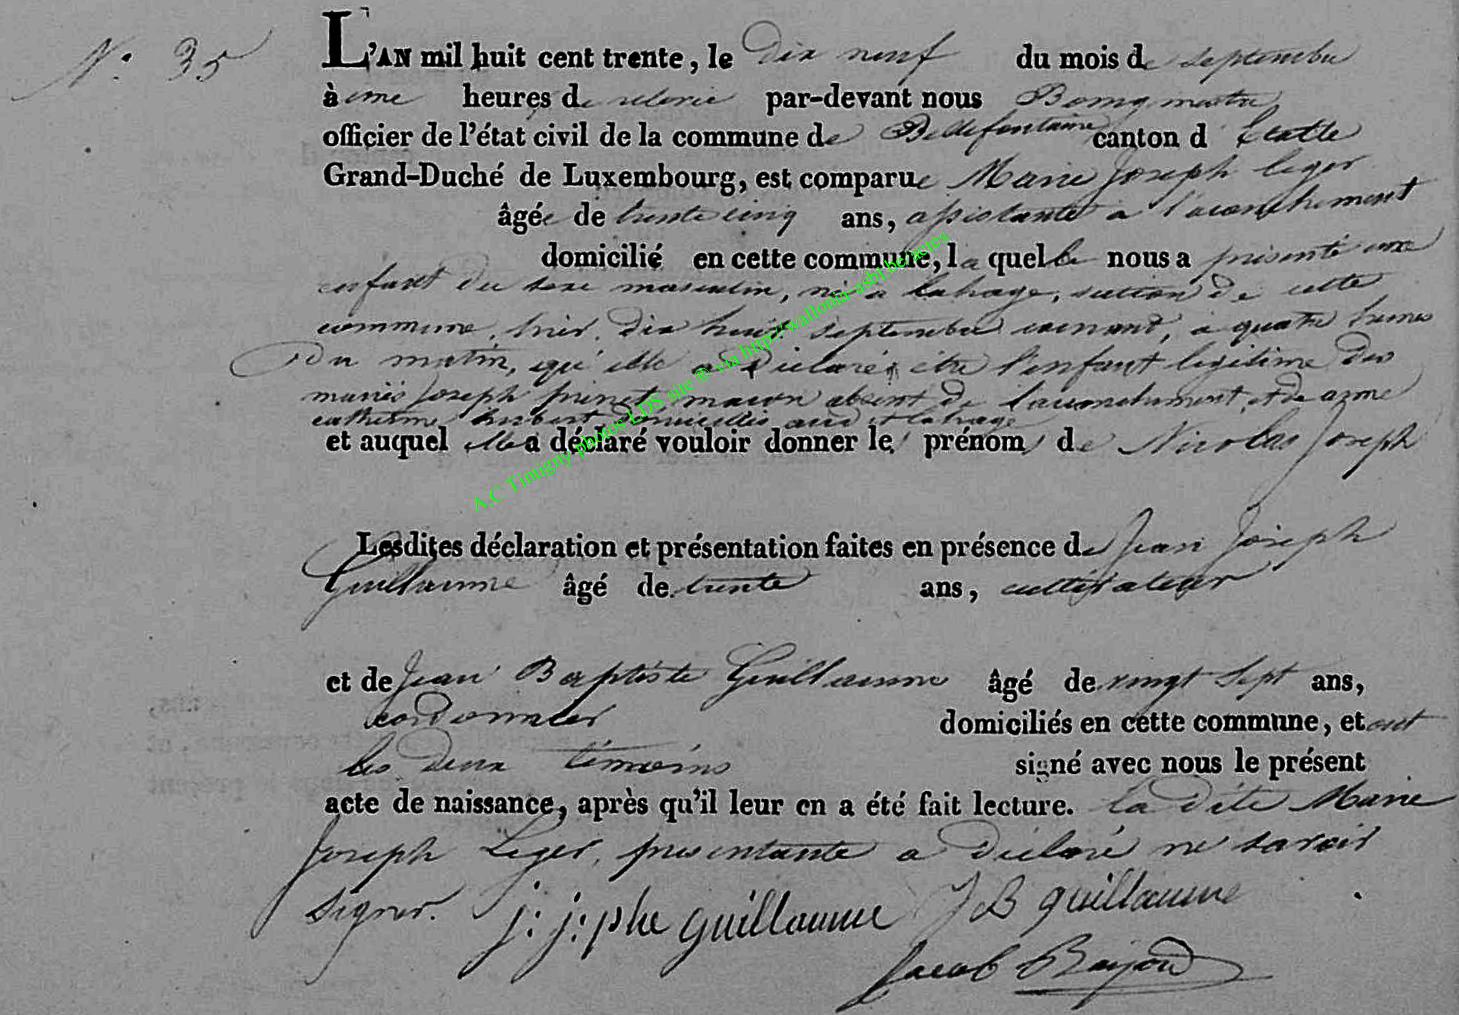 N.° 35
L'AN mil huit cent trente, le dix neuf du mois de septembre
à une heures de relevée par-devant nous Bourgmestre
officier de l'état civil de la commune de Bellefontaine canton d' Etalle
Grand-Duché de Luxembourg, est comparue Marie Joseph leger
âgée de trente cinq ans, assistante a l'acouchement
domicilié en cette commune, la quelle nous a présenté une
enfant du sexe masculin, né a lahage, section de cette
commune, hier, dix huit septembre courant, a quatre heures
du matin, qu'elle a déclaré être l'enfant legitime des
mariés Joseph maçon absent de l'acouchement, et de
catherine hubert domiciliés audit lahage
et auquel elle a déclaré vouloir donner les prénoms de Nicolas Joseph
Lesdites déclaration et présentation faites en présence de Jean Joseph
Guillaume âgé de trente ans, cultivateur
et de Jean Baptiste Guillaume âgé de vingt sept ans,
cordonnier domiciliés en cette commune, et ont
les deux témoins signé avec nous le présent
acte de naissance, après qu'il leur en a été fait lecture. la dite Marie
Joseph Leger, presentante a declaré ne savoir
signer. j: j:phe guillaume JB guillaume
Jacob
A.C Tintigny photos LDS site ® via http://wallonia-asbl.be/actes